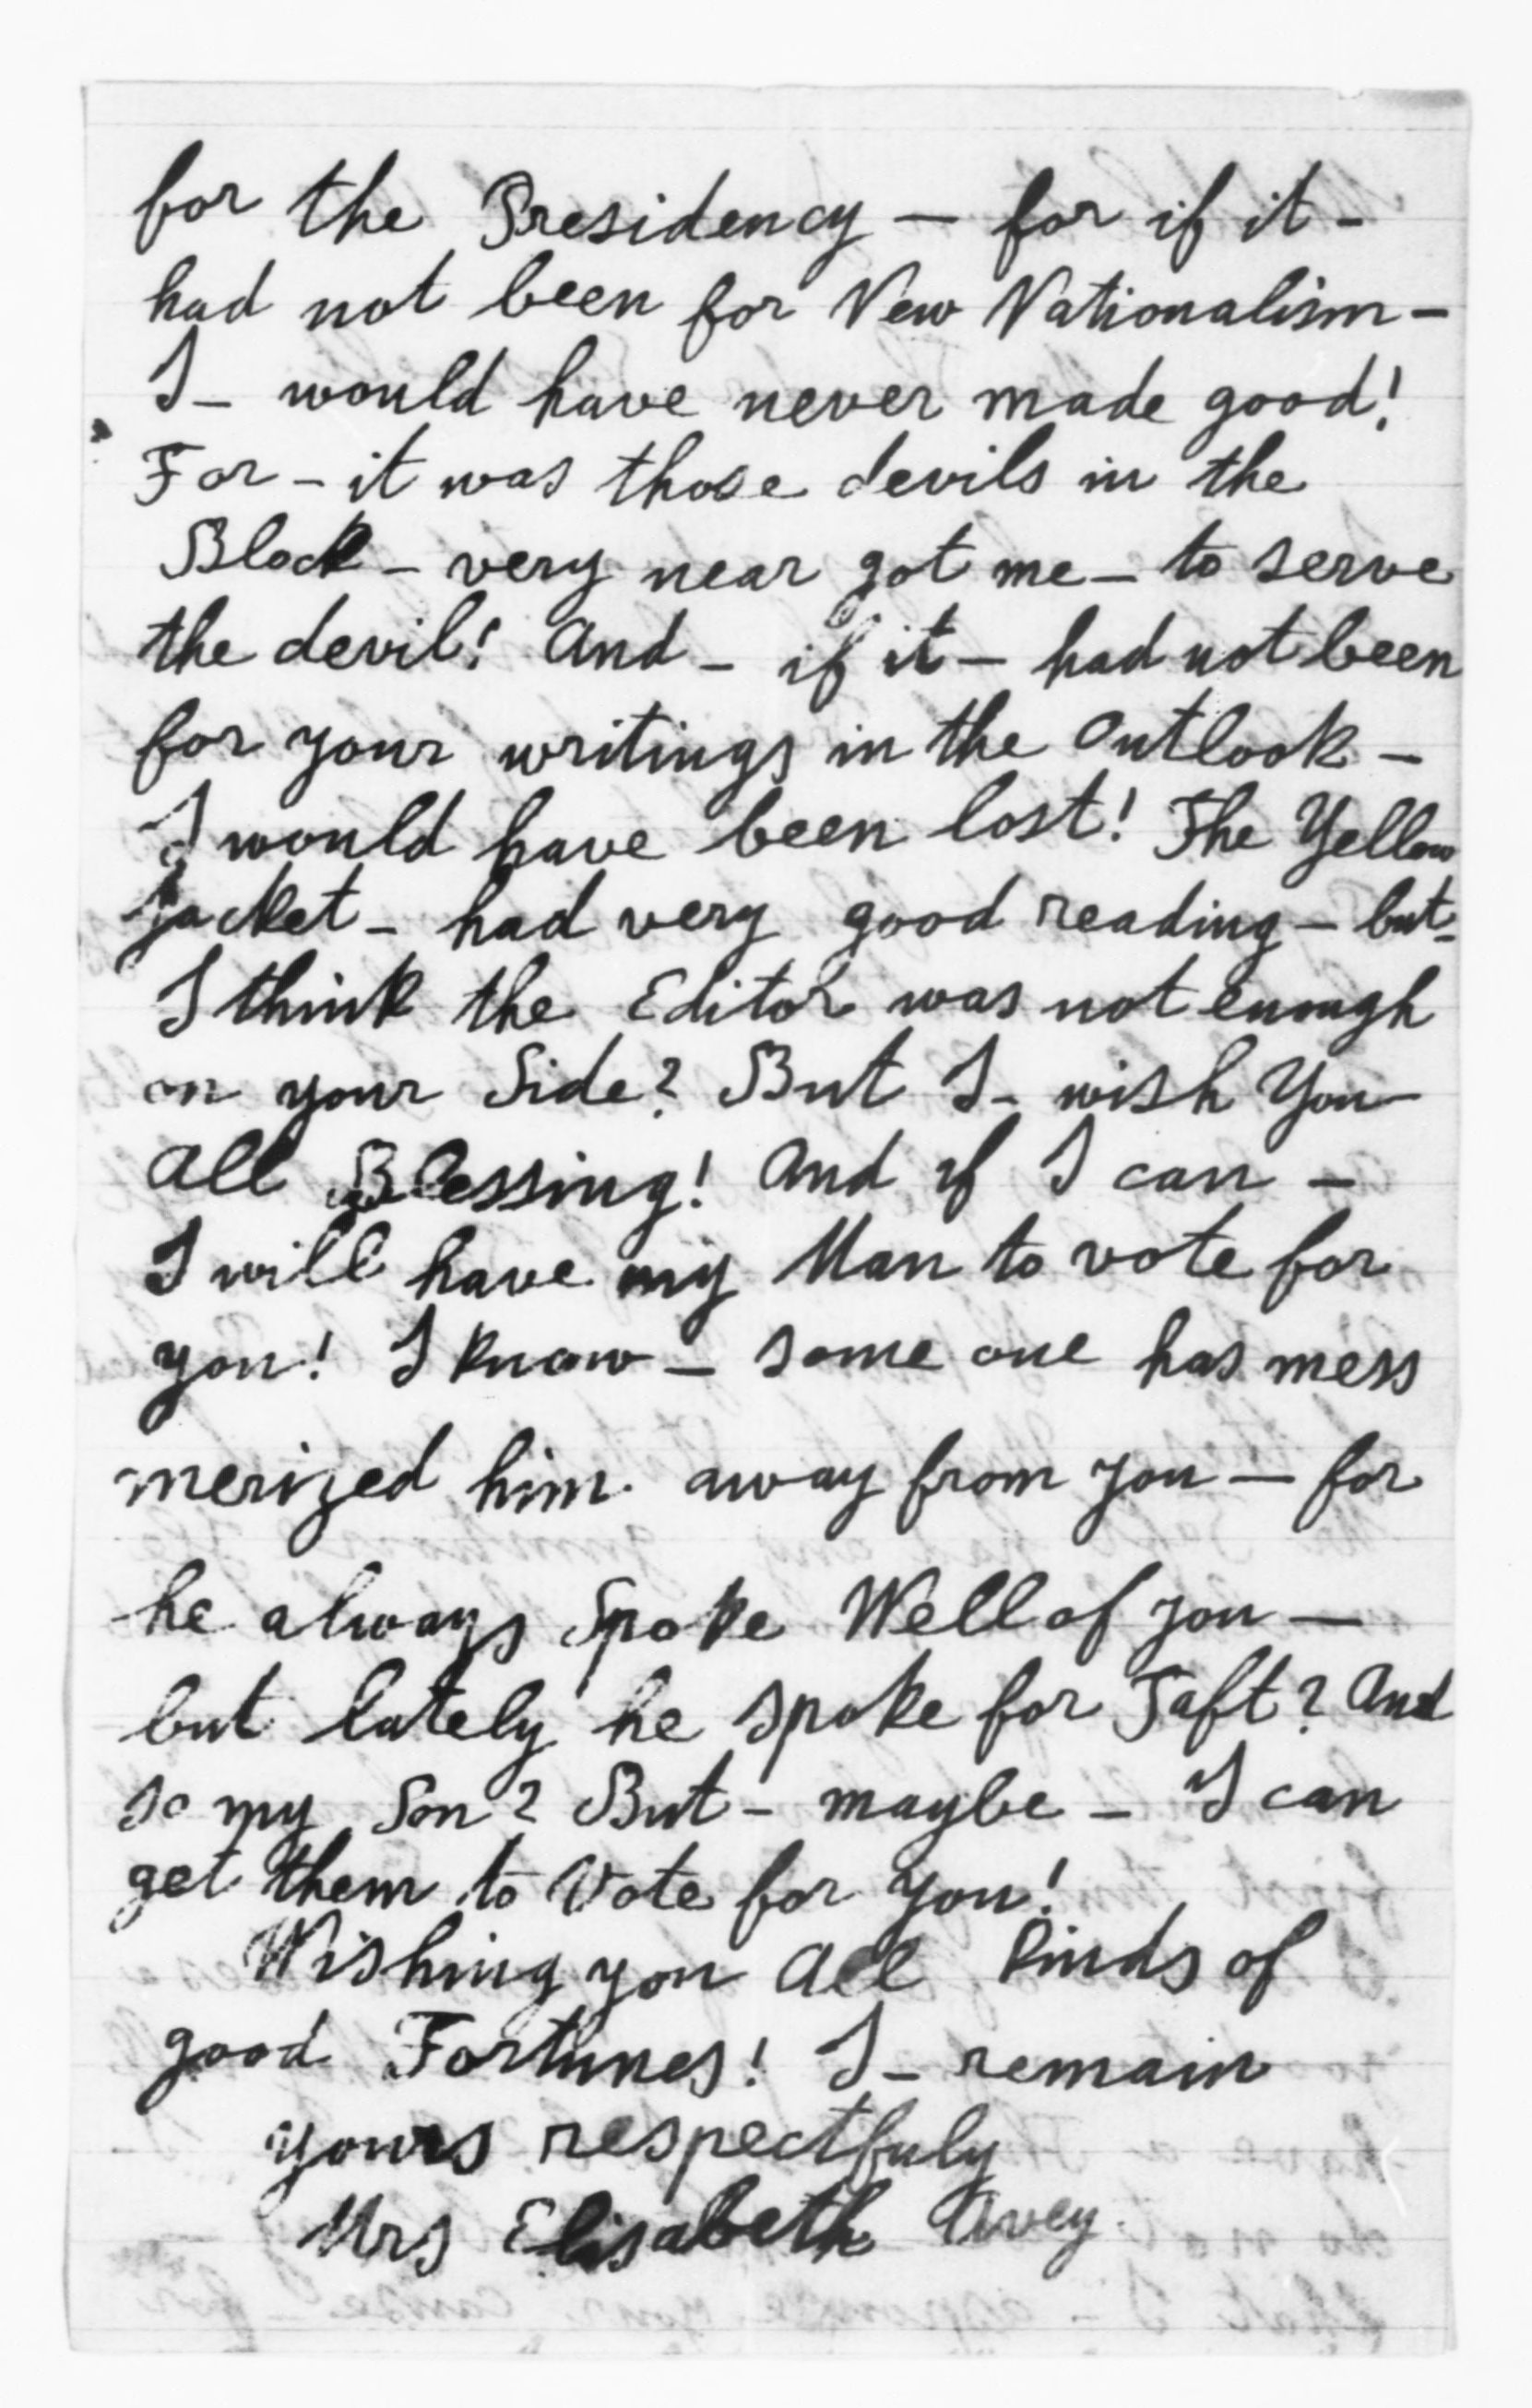 for the Presidency — for if it -
had not been for New Nationalism -
I - would have never made good!
For - it was those devils in the
Block - very near got me - to serve
the devil! And - if it - had not been
for your writings in the Outlook -
I would have been lost! The Yellow
Jacket - had very good reading - but -
I think the Editor was not enough
on your Side? But I - wish You
all Blessing! And if I can -
I will have my Man to vote for
you! I know - some one has mess
merized him away from you - for
he always Spoke Well of you -
but lately he spoke for Taft? And
so my Son? But - maybe - I can
get them to Vote for you!
Wishing you All kinds of
good Fortunes! I - remain
yours respectfuly
Mrs Elisabeth Avey.